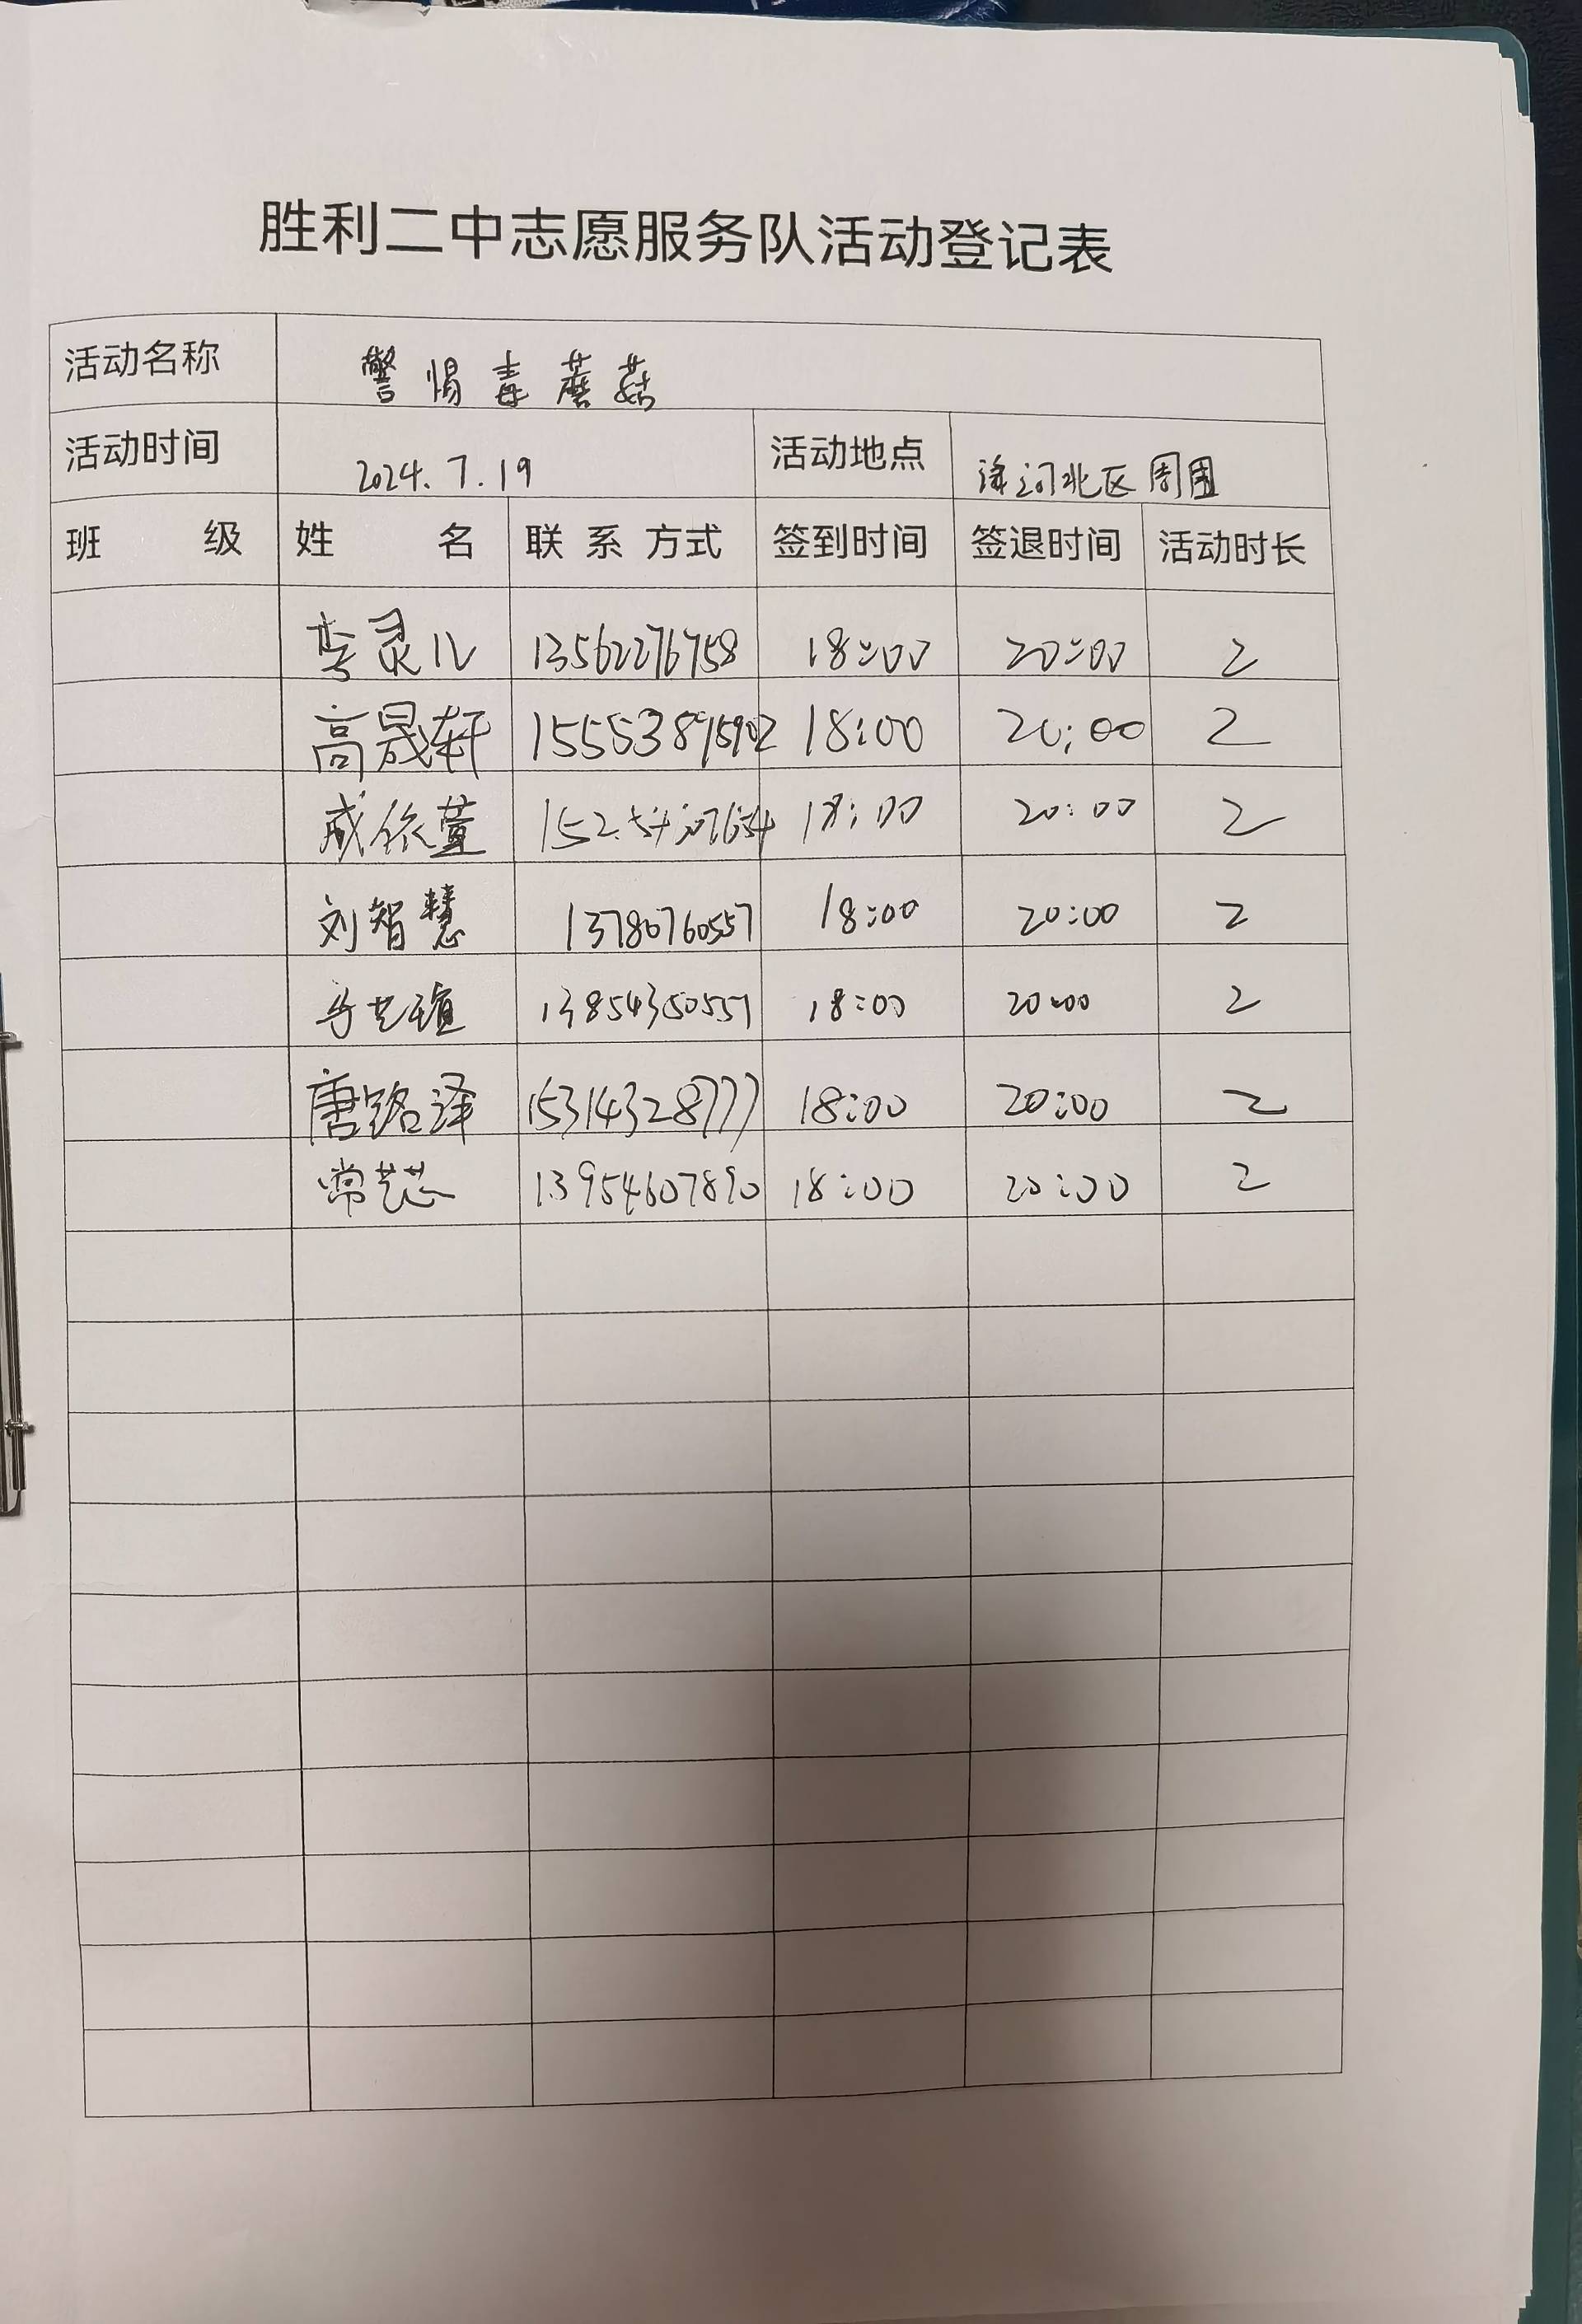 胜利二中志愿服务队活动登记表
活动名称 警惕毒蘑菇
活动时间 2024.7.19 活动地点 河北区周围
班 级 姓 名 联系方式 签到时间 签退时间 活动时长
栾灵儿 13562276758 18:00 20:00 2
高晟轩 18:00 20:00 2
戚依萱 18:00 20:00 2
刘智慧 13780760557 18:00 20:00 2
13854350557 18:00 20:00 2
唐铭泽 15314328777 18:00 20:00 2
常芸芯 13954607890 18:00 20:00 2